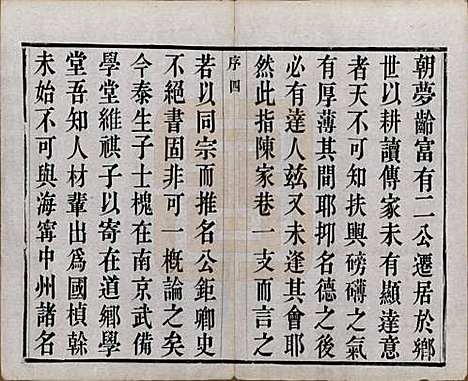 朝夢齡富有二公遷居於鄉
世以耕讀傳家未有顯達意
者天不可知扶輿磅礴之氣
有厚薄其間耶抑名德之後
必有達人茲又未逢其會耶
然此指陳家巷一支而言之
序四
若以同宗而推名公鉅卿史
不絕書固非可一概論之矣
今泰生子士槐在南京武備
學堂維祺子以寄在道鄉學
堂吾知人材輩出為國楨榦
未始不可與海寧中州諸名